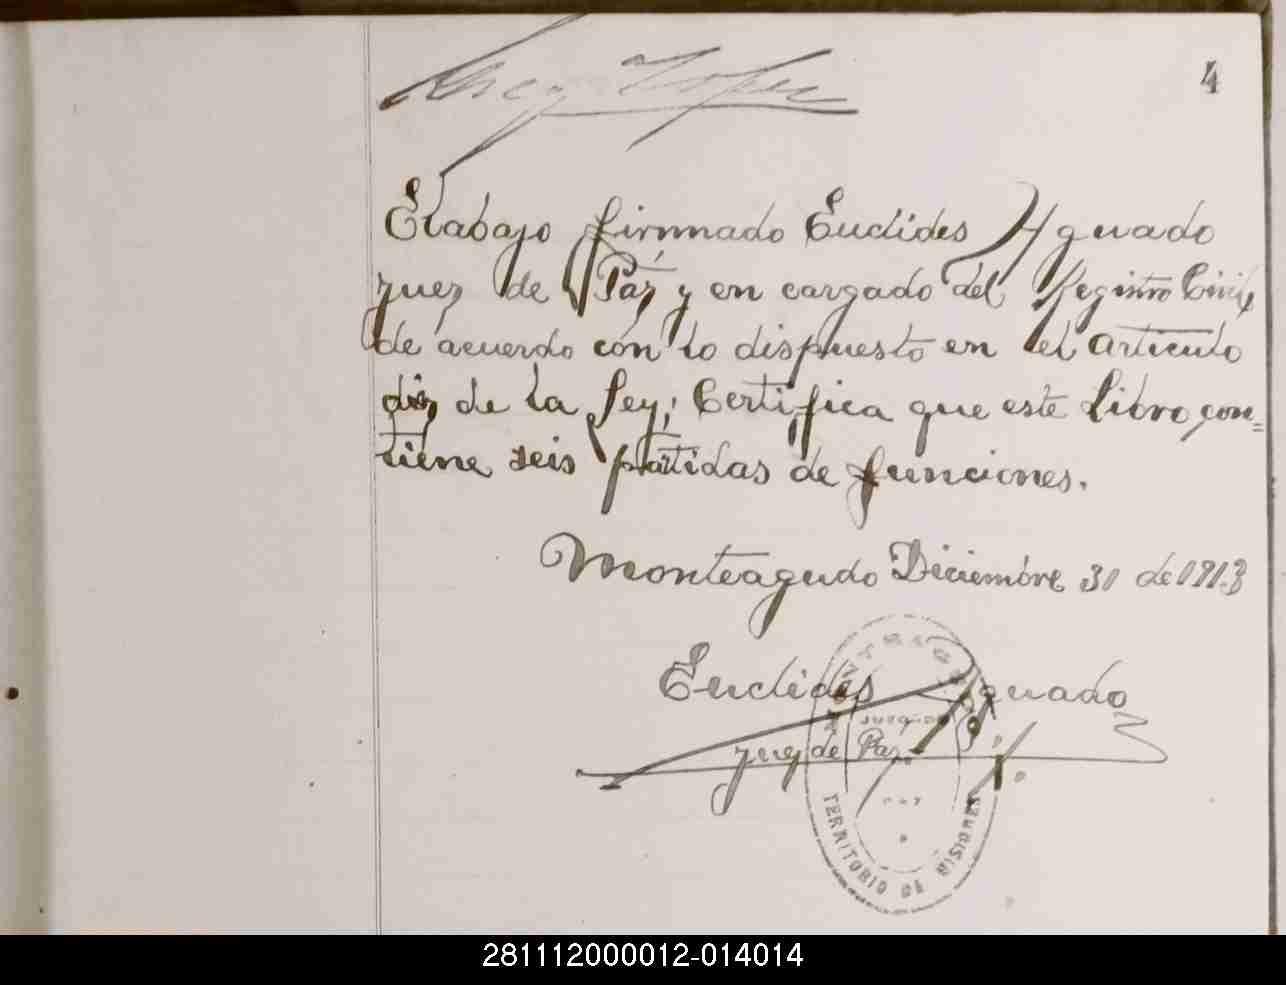 4
Lopez
El abajo firmnado Euclides Aguado
Juez de Paz y en cargado del Registro Civil
de acuerdo con lo dispuesto en el articulo
diez de la Ley; Certifica que este Libro con=
tiene seis partidas de funciones.
Monteagudo Diciembre 31 de 1913
Euclides Aguado
Juez de Paz
JUZGADO
TERRITORIO DE MISIONES
281112000012-014014